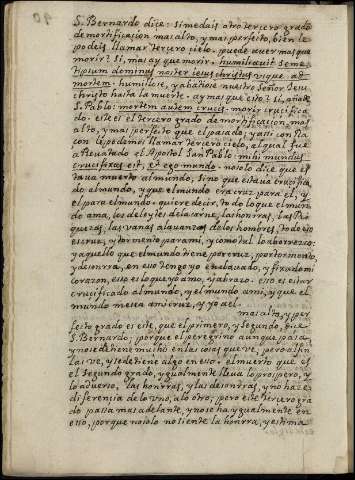 S. Bernardo dice: si me dais otro tercero grado
de mortificacion mas alto, y mas perfeto, bien le
podeis llamar tercero cielo. puede aver mas que
morir? Si, mas ay que morir. humiliavit seme
tipsum dominus noster iesus christus usque ad
mortem. humillose, y abatiose nuestro Señor Jesu
christo hasta la muerte. ay mas que esto? si, añade
S. Pablo: mortem autem crucis. morir crucifica
do. este es el tercero grado de mortificacion, mas
alto, y mas perfeto que el pasado; y assi con Ra
con le podemos llamar tercero cielo, al qual fue
arrebatado el Apostol San Pablo: mihi mundus
crucifixus est, et ego mundo. no solo dice que es
tava muerto al mundo, sino que estava crucifica
do al mundo, y que el mundo era cruz para el, y
el para el mundo. quiere decir, todo lo que el mun
do ama, los deleytes de la carne, las honrras, las Ri
quezas, las vanas alabanzas de los hombres, todo eso
es cruz, y tormento para mi, y como tal lo aborrezco:
y aquello que el mundo tiene por cruz, por tormento,
y desonrra, en eso tengo yo enclavado, y fixado mi
corazon, esso es lo que yo amo, y abrazo. esso es estar
crucificado al mundo, y el mundo a mi, y que el
mundo me sea a mi cruz, y yo a el.
mas alto, y per
feito grado es este, que el primero, y segundo, dice
S. Bernardo; porque el peregrino aunque pasa,
y no se detiene mucho en las cosas que ve, pero al fin
las ve, y se detiene algo en esso: el muerto que es
el segundo grado, ygualmente lleva lo prospero, y
lo adverso, las honrras, y las desonrras, y no haze
diferencia de lo uno, a lo otro; pero este tercero gra
do passa mas adelante, y no se ha ygualmente en
esso, porque no solo no siente la honrra, y estima